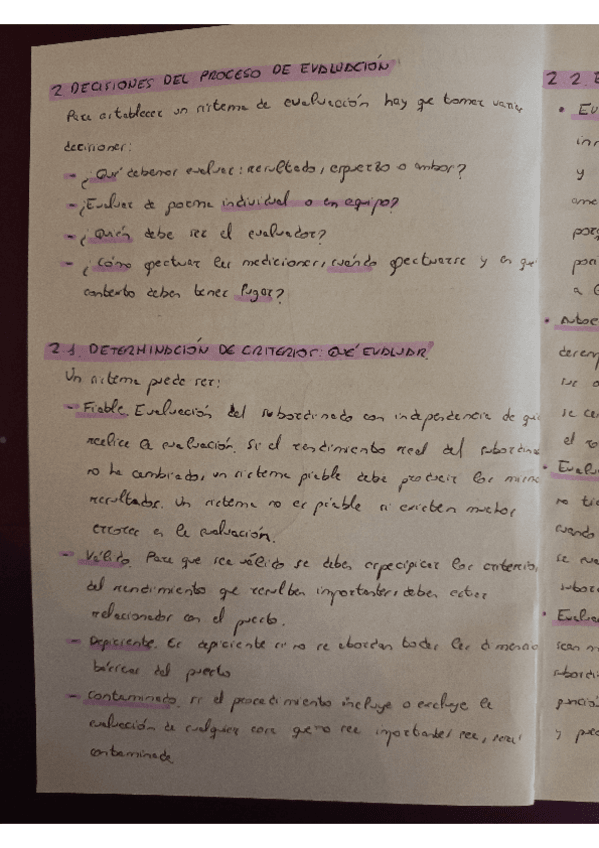 2 DECISIONES DEL PROCESO DE EVALUACIÓN
Para establecer un sistema de evaluación hay que tomar varias
decisiones:
- ¿Qué debemos evaluar: resultado, esfuerzo o ambos?
- ¿Evaluar de forma individual o en equipo?
- ¿Quién debe ser el evaluador?
- ¿Cómo efectuar las mediciones, cuándo efectuarse y en qué
contexto deben tener lugar?
2.1. DETERMINACIÓN DE CRITERIOS: QUÉ EVALUAR?
Un sistema puede ser:
- Fiable. Evaluación del subordinado con independencia de qui
realice la evaluación. Si el rendimiento real del subordina
no ha cambiado, un sistema fiable debe producir los mismo
resultados. Un sistema no es fiable si existen muchos
errores en la evaluación.
- Válido. Para que sea válido se deben especificar los criterios
del rendimiento que resulten importantes, deben estar
relacionados con el puesto.
- Deficiente. Es deficiente si no se abordan todas las dimensio
básicas del puesto
- Contaminado. si el procedimiento incluye o excluye la
evaluación de cualquier cosa que no sea importante, sea, será
contaminada
2.2. E
• Ev
inn
y
ame
porq
por
a G
• Autoe
desemp
sue o
se ce
el ro
• Evalua
no tie
cuando
se rea
subor
• Evalua
sean m
subordi
funció
y pued